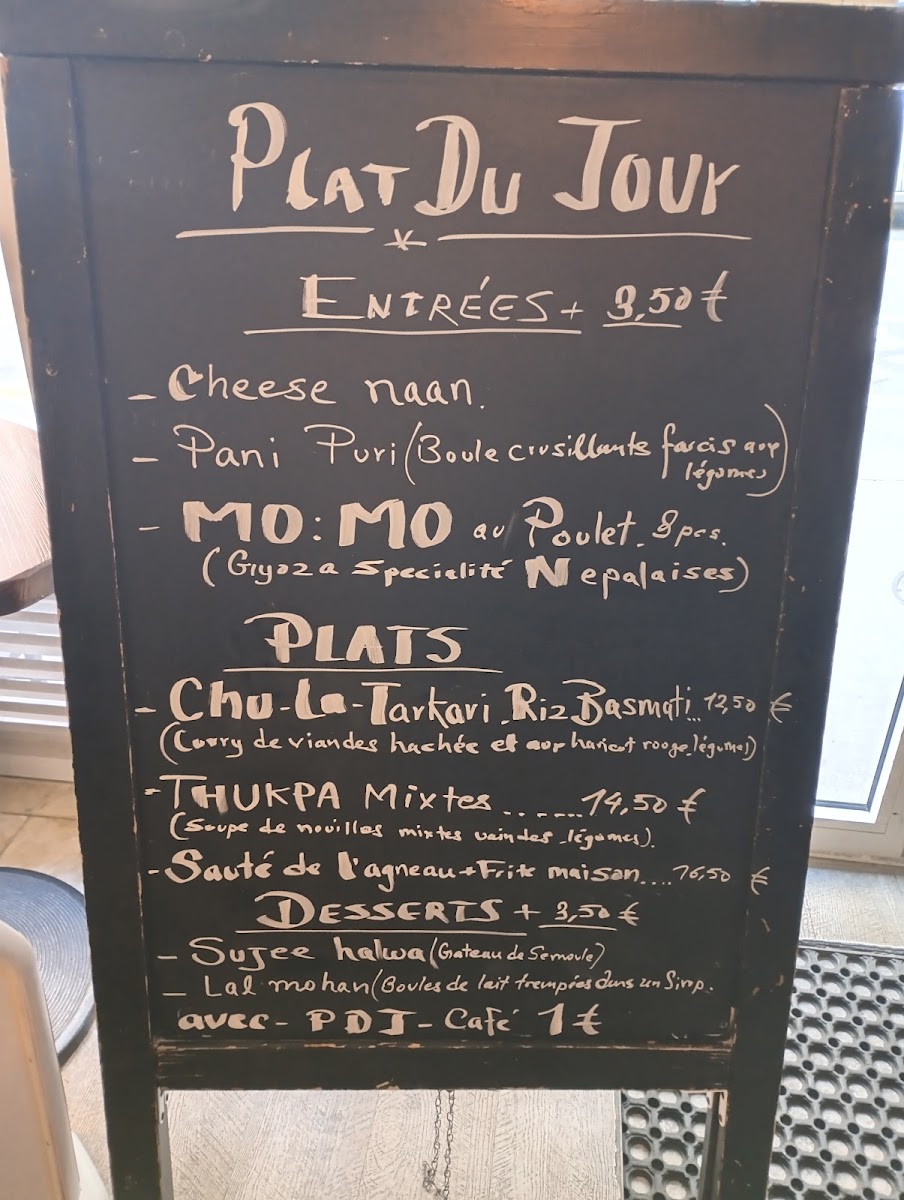 PLAT DU JOUR
*
ENTRÉES + 3,50 €
- Cheese naan.
- Pani Puri (Boule crusillante farcis aux
légumes)
- MO:MO au Poulet. 8 pcs.
(Gyoza specialité Nepalaises)
PLATS
- Chu-La-Tarkari. Riz Basmati... 12,50 €
(Curry de viandes hachée et aux haricot rouge, légumes)
- THUKPA Mixtes ...... 14,50 €
(Soupe de nouilles mixtes veindes légumes).
- Sauté de l'agneau + Frite maison.... 16,50 €
DESSERTS + 3,50 €
- Sujee halwa (Gateau de Semoule)
- Lal mohan (Boules de lait trempées dans un Sirop.
avec - PDJ - Café 1 €